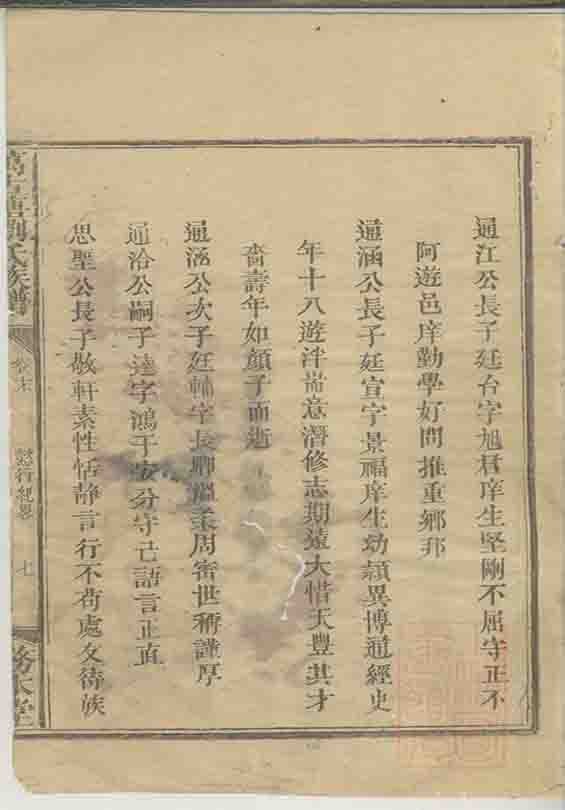 通江公長子廷台字旭君庠生堅剛不屈守正不
阿遊邑庠勤學好問推重鄉邦
通涵公長子廷宣字景福庠生幼頴異博通經史
年十八遊泮耑意潛修志期遠大惜天豐其才
嗇壽年如顏子而逝
通涵公次子廷輔字長卿溫柔周密世稱謹厚
通洽公嗣子達字鴻于安分守己語言正直
思聖公長子敬軒素性恬静言行不苟處交待族
萬邑劉氏族譜
卷末
懿行紀畧
七
務本堂